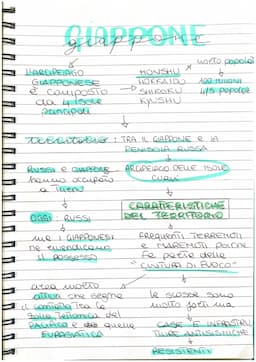 GIAPPONE
giappone
L'ARCIPELAGO GIAPPONESE
È COMPOSTO
da 4 isole
principali
HONSHU
HOKKAIDO
SHIKOKU
KYUSHU
molto popolosi
100 milioni
4/5 popolaz
Territorio: TRA IL GIAPPONE E la
PENISOLA RUSSA
RUSSI E GIAPPONE
hanno occupato
a Turno
ARCIPELAGO DELLE ISOLE
CURILI
OGGI: RUSSI
ma i GIAPPONESI
ne rivendicano
il possesso
CARATTERISTICHE
DEL TERRITORIO
FREQUENTI TERREMOTI
e MAREMOTI poiché
fa parte della
"CINTURA DI FUOCO"
area molto
attiva che segna
il confine tra la
zona tettonica del
PACIFICO e quella
EUROASIATICA
le scosse sono
molto forti ma
CASE E INFRASTRUT
TURE ANTISISMICHE
RESISTENTI